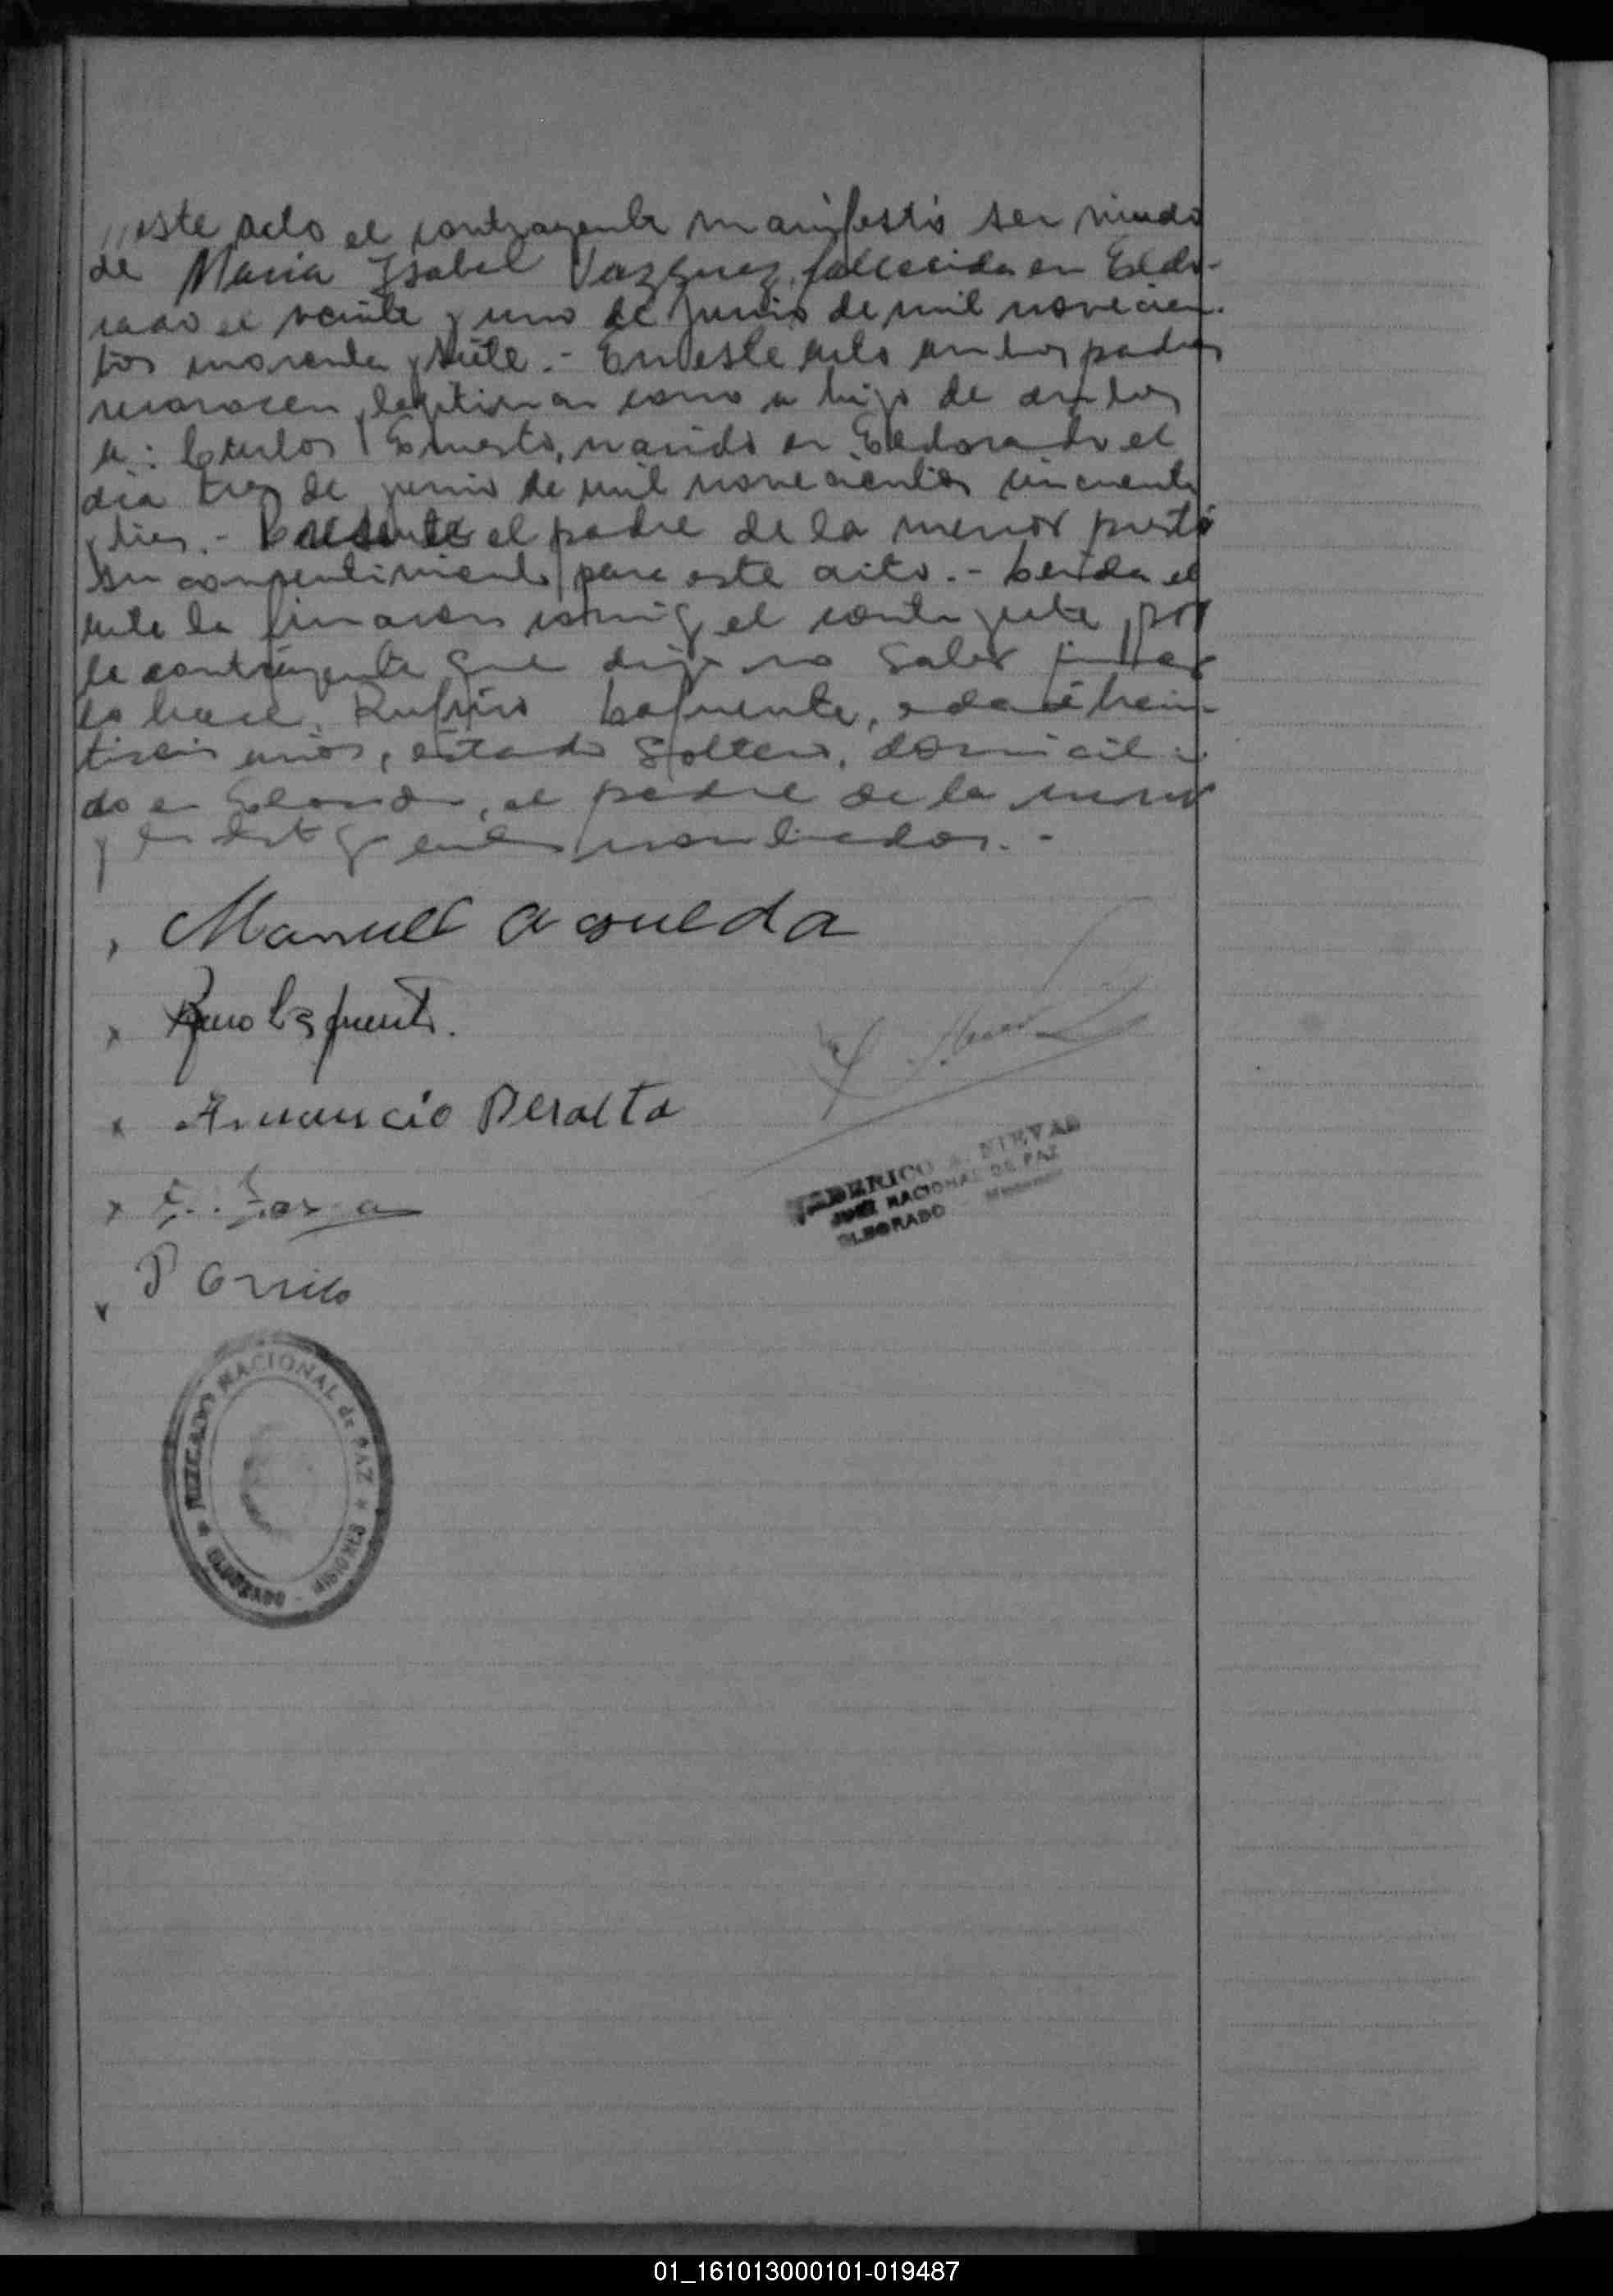 este acto el contrayente manifestó ser viudo
de Maria Ysabel Vazquez, fallecida en Eldo-
rado el veinte y uno de Junio de mil novecien-
tos cuarenta y siete.- En este acto ambos padres
reconocen, legitiman como a hijo de ambos
a: Carlos Ernesto, nacido en Eldorado el
dia tres de junio de mil novecientos cincuenta
y tres.- Presente el padre de la menor prestó
su consentimiento para este acto.- Leida el
acta la firmaron conmigo el contrayente, por
la contrayente que dijo no saber firmar
lo hace, Rufino Lafuente, edad vein-
tiseis años, estado soltero, domicilia-
do en Eldorado, el padre de la menor
y los testigos nombrados.-
Manuel
Lafuente.
Peralta
FEDERICO A. NIEVAS
JUEZ NACIONAL DE PAZ
ELDORADO Misiones
JUZGADO NACIONAL de PAZ
ELDORADO - MISIONES
01_161013000101-019487